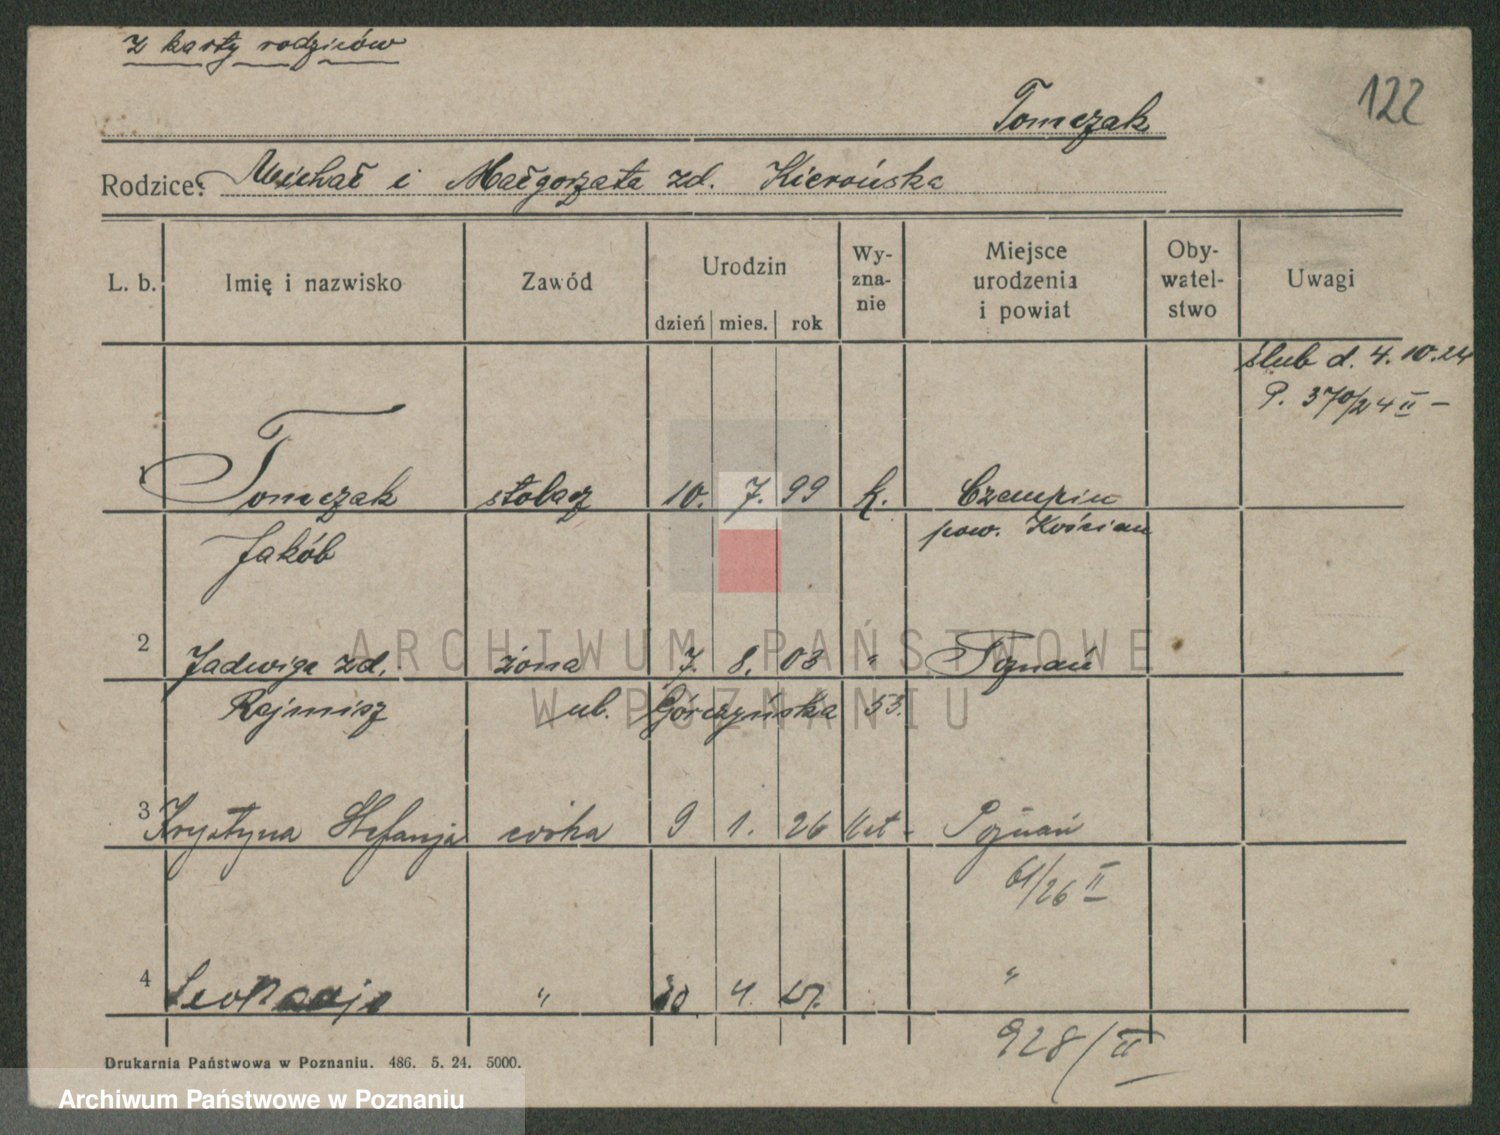 z karty rodziców
Tomczak
122
Rodzice: Michał i Małgorzata zd. Kierońska
L. b. Imię i nazwisko Zawód Urodzin dzień mies. rok Wyznanie Miejsce urodzenia i powiat Obywatelstwo Uwagi
ślub d. 4.10.24
P. 370/24 II –
1 Tomczak stolarz 10. 7. 99 k. Czempiń
Jakób pow. Kościan
2 Jadwiga zd. żona 7. 8. 03 " Poznań
Rejmisz ul. Górczyńska 53.
3 Krystyna Stefanja córka 9 1. 26 kat - Poznań
61/26 II
4 Leokadja " 20. 4. 27. "
928/II
Drukarnia Państwowa w Poznaniu. 486. 5. 24. 5000.
ARCHIWUM PAŃSTWOWE
W POZNANIU
Archiwum Państwowe w Poznaniu